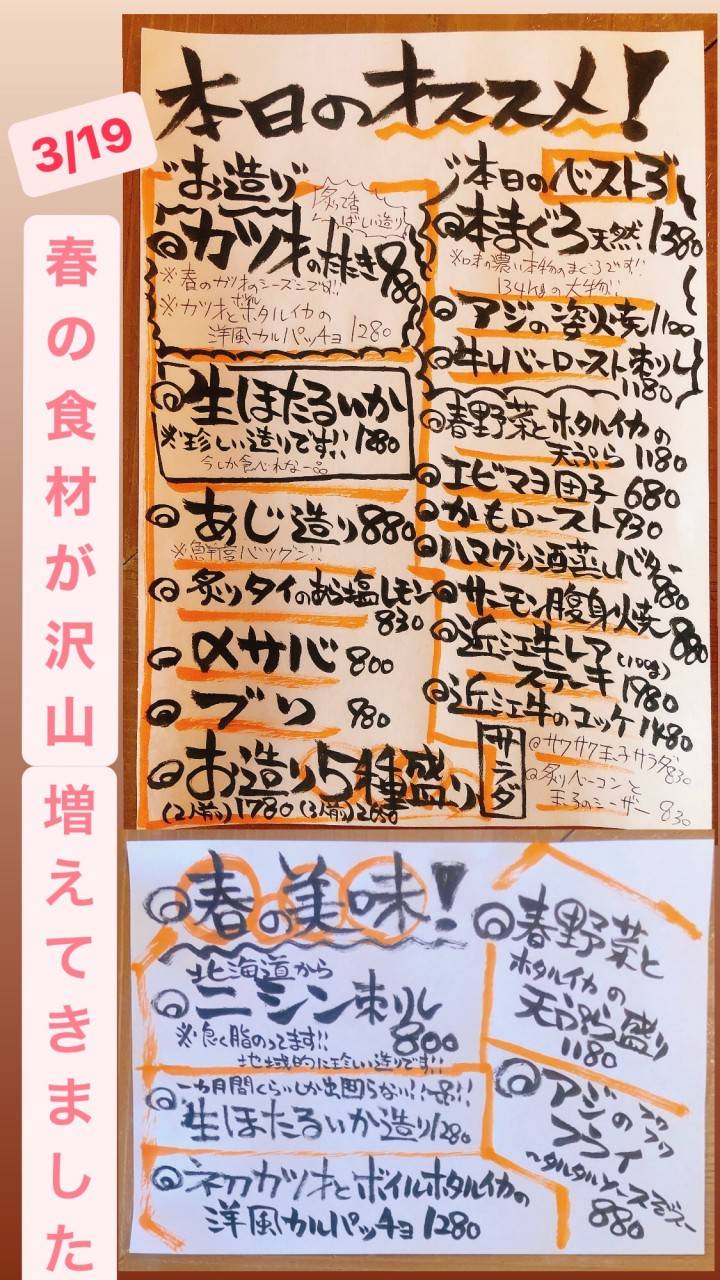 3/19
春の食材が沢山
増えてきました
本日のオススメ!
お造り
炙って香ばしい造り
カツオのたたき 980
※春のカツオのシーズンです!!
※カツオとボイルホタルイカの
洋風カルパッチョ 1280
生ほたるいか
※珍しい造りです!! 1280
今しか食べれない一品
あじ造り 880
※鮮度バツグン!!
炙りタイのあら塩レモン
830
〆サバ 800
ブリ 980
お造り5種盛り
(2人前)1780 (3人前)2080
本日のベスト3
本まぐろ天然 1380
※味の濃い本物のまぐろです!!
134kgの大物!!
アジの姿焼 1100
牛レバーロースト刺し
1180
春野菜とホタルイカの
天ぷら 1180
エビマヨ団子 680
かもロースト 930
ハマグリ酒蒸しバター
980
サーモン腹身焼 880
近江牛レア(100g)
ステーキ 1980
近江牛のユッケ 1480
サラダ
サクサク玉子サラダ 830
炙りベーコンと
玉子のシーザー 830
春の美味!
北海道から
ニシン刺し
800
※良く脂のってます!!
地域的に珍しい造りです!!
一カ月間くらいしか出回らない!!一品!!
生ほたるいか造り 1280
初カツオとボイルホタルイカの
洋風カルパッチョ 1280
春野菜と
ホタルイカの
天ぷら盛り
1180
アジのフワフワ
フライ
〜タルタルソースで〜
880